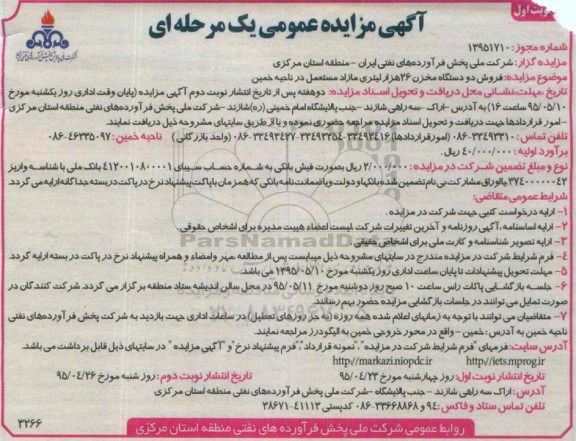 نوبت اول
آگهی مزایده عمومی یک مرحله ای
شماره مجوز: ۱۳۹۵۱۷۱۰
مزایده گزار: شرکت ملی پخش فرآورده‌های نفتی ایران - منطقه استان مرکزی
موضوع مزایده: فروش دو دستگاه مخزن ۲۶هزار لیتری مازاد مستعمل در ناحیه خمین
تاریخ ،مهلت،نشانی محل دریافت و تحویل اسناد مزایده: دوهفته پس از تاریخ انتشار نوبت دوم آگهی مزایده (پایان وقت اداری روز یکشنبه مورخ
۹۵/۰۵/۱۰ ساعت ۱۶) به آدرس -اراک- سه راهی شازند -جنب پالایشگاه امام خمینی (ره)شازند -شرکت ملی پخش فرآورده‌های نفتی منطقه استان مرکزی
-امور قراردادها جهت دریافت و تحویل اسناد مزایده مراجعه حضوری نموده و یا از طریق سایتهای مشروحه ذیل دریافت نمایند.
تلفن تماس: ۳۳۴۹۳۳۱۰-۰۸۶ (امورقراردادها) ۳۳۴۹۳۴۱۶-۳۳۴۹۳۲۵۴-۳۳۴۹۳۴۳۷-۰۸۶ (واحد بازرگانی) ناحیه خمین: ۴۶۳۳۵۰۹۷-۰۸۶
برآورد اولیه: ۴۰/۰۰۰/۰۰۰ ریال.
نوع و مبلغ تضمین شرکت در مزایده: ۲/۰۰۰/۰۰۰ ریال بصورت فیش بانکی به شماره حساب سیبای ۴۱۲۰۰۱۰۸۰۰۰۰۱ بانک ملی با شناسه واریز
۳۷۴۰۰۰۰۰۰۴۲ یااوراق مشارکت بی نام تضمین شده بانکها و دولت ویاضمانت نامه بانکی که همزمان باپاکت پیشنهاد نرخ درپاکت دربسته جداگانه ارایه می گردد.
شرایط عمومی متقاضی:
۱- ارایه درخواست کتبی جهت شرکت در مزایده.
۲- ارایه اساسنامه ،آگهی روزنامه و آخرین تغییرات شرکت ،لیست اعضاء هییت مدیره برای اشخاص حقوقی.
۳- ارایه تصویر شناسنامه و کارت ملی برای اشخاص حقیقی
۴- فرم شرایط شرکت در مزایده مندرج در سایتهای مشروحه ذیل میبایست پس از مطالعه ،مهر وامضاء و همراه پیشنهاد نرخ در پاکت در بسته ارایه گردد.
۵- مهلت تحویل پیشنهادات تا پایان ساعت اداری روز یکشنبه مورخ ۱۳۹۵/۰۵/۱۰ می باشد.
۶- جلسه بازگشایی پاکات راس ساعت ۱۰ صبح روز دوشنبه مورخ ۹۵/۰۵/۱۱ در محل سالن اندیشه ستاد منطقه برگزار می گردد. شرکت کنندگان در
صورت تمایل می توانند در جلسات بازگشایی مزایده حضور بهم رسانند.
۷- متقاضیان می توانند با توجه به زمانهای اعلام شده همه روزه (به جز روزهای تعطیل)در ساعات اداری جهت بازدید به شرکت پخش فرآورده‌های نفتی
ناحیه خمین به آدرس :خمین - واقع در محور خروجی خمین به الیگودرز مراجعه نمایند.
آدرس سایت: فرمهای "فرم شرایط شرکت در مزایده"،"نمونه قرارداد"،"فرم پیشنهاد نرخ"و "آگهی مزایده" در سایتهای ذیل قابل برداشت می باشد.
http://iets.mprog.ir http//markazi.niopdc.ir
تاریخ انتشار نوبت اول: روز چهارشنبه مورخ ۹۵/۰۴/۲۳ تاریخ انتشار نوبت دوم: روز شنبه مورخ ۹۵/۰۴/۲۶
آدرس: اراک سه راهی شازند - جنب پالایشگاه -شرکت ملی پخش فرآورده‌های نفتی منطقه استان مرکزی
تلفن تماس ستاد و فاکس: ۹۴ و ۳۳۶۶۸۸۶۸-۰۸۶ کدپستی ۴۱۱۱۳-۳۸۶۷۱
روابط عمومی شرکت ملی پخش فرآورده های نفتی منطقه استان مرکزی
۳۲۶۶
ParsNamadData